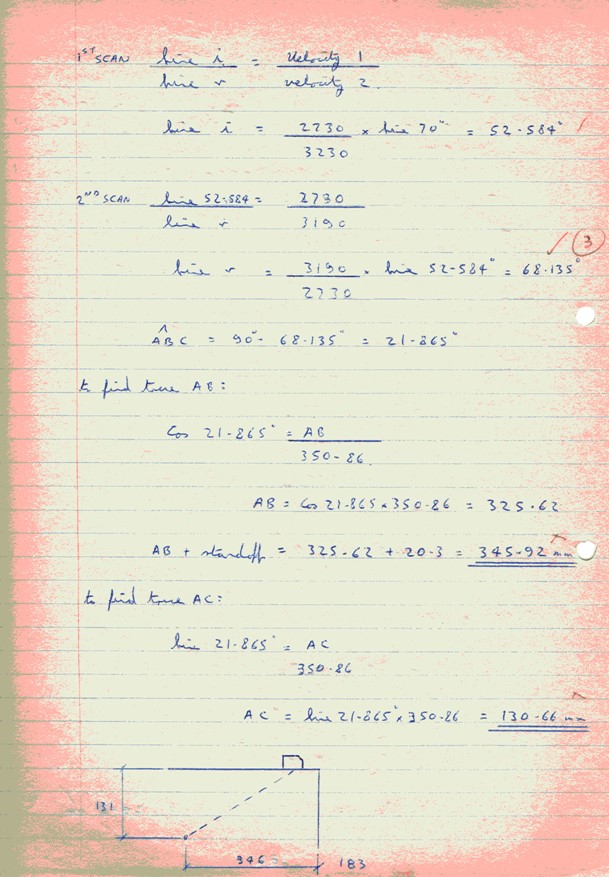 1ST SCAN Sine i = Velocity 1
Sine r velocity 2.
Sine i = 2730 × Sine 70° = 52.584°
3230
2ND SCAN Sine 52.584 = 2730
Sine r 3190
3
Sine r = 3190 × Sine 52.584° = 68.135°
2730
ABC = 90° - 68.135° = 21.865°
to find true AB:
Cos 21.865° = AB
350.86.
AB = Cos 21.865 × 350.86 = 325.62
AB + standoff = 325.62 + 20.3 = 345.92 mm
to find true AC:
Sine 21.865° = AC
350.86
AC = Sine 21.865° × 350.86 = 130.66 mm
131
346 183